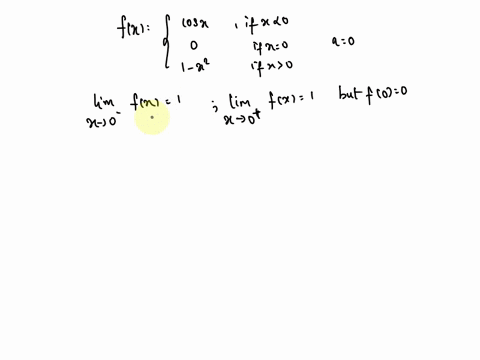 f(x): { cos x , if x < 0
0 if x=0 a=0
1-x² if x>0
lim x→0⁻ f(x) = 1 ; lim x→0⁺ f(x) = 1 but f(0)=0